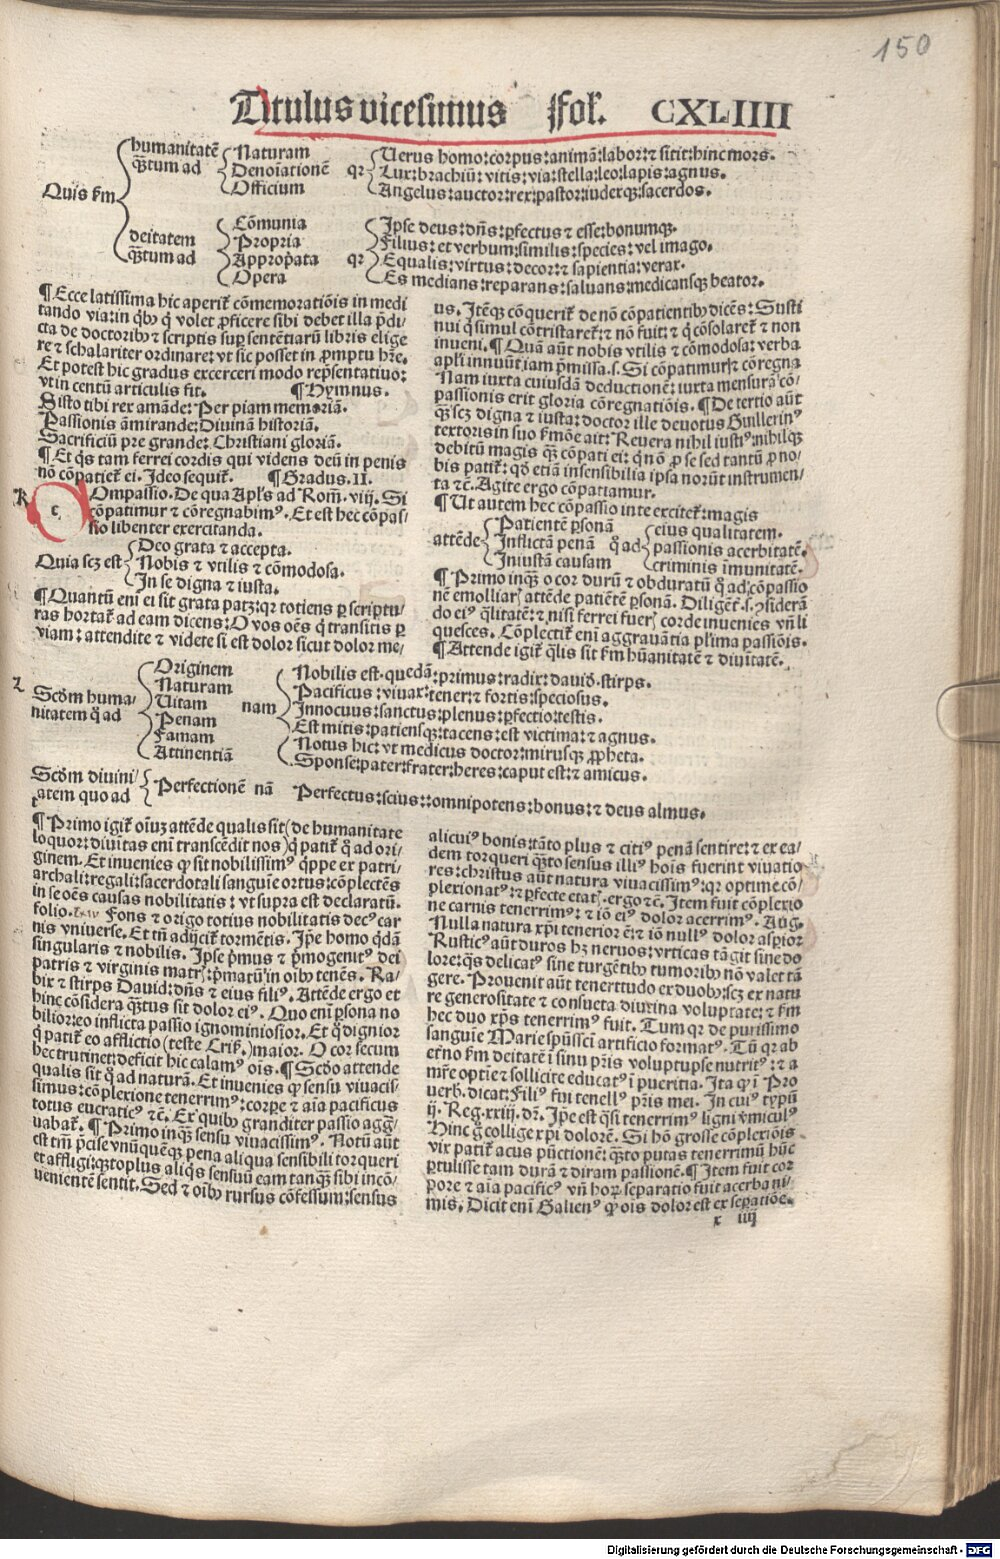 150
Titulus vicesimus Fol'. CXLIIII
humanitatē
q̄ꝫtum ad
Naturam
Denoīationē
Officium
qr
Uerus homo: corpus: animā: labor: ⁊ sitit: hinc mors.
Lux: brachiū: vitis: via: stella: leo: lapis: agnus.
Angelus: auctor: rex: pastor: iudexqꝫ: sacerdos.
Quis ẜm
deitatem
q̄ꝫtum ad
Cōmunia
Propria
Appropͥata
Opera
qr
Ipse deus: dn̄s: ꝑfectus ⁊ esse: bonumqꝫ.
Filius: et verbum: similis: species: vel imago.
Equalis: virtus: decor: ⁊ sapientia: verax.
Es medians: reparans: saluans: medicansqꝫ beator.
¶ Ecce latissima hic aperit᷑ cōmemoratiōis in medi
tando via: in qͥbꝰ qͥ volet ꝓficere sibi debet illa p̄di-
cta de doctoribꝰ ⁊ scriptis suꝑ sentētiarū libris elige
re ⁊ schalariter ordinare: vt sic posset in ꝓmptu hr̄e.
Et potest hic gradus excerceri modo rep̄sentatiuo:
vt in centū articulis fit. ¶ Hymnus.
Sisto tibi rex amāde: Per piam memoriā.
Passionis āmirande: Diuinā historiā.
Sacrificiū pre grande: Christiani gloriā.
¶ Et qͥs tam ferrei cordis qui videns deū in penis
nō cōpatiet᷑ ei. Ideo sequit᷑. ¶ Gradus. II.
K
c
Ompassio. De qua Apl's ad Rom̄. viij. Si
cōpatimur ⁊ cōregnabimꝰ. Et est hec cōpas-
sio libenter exercitanda.
Quia scꝫ est
Deo grata ⁊ accepta.
Nobis ⁊ vtilis ⁊ cōmodosa.
In se digna ⁊ iusta.
¶ Quantū eni ei sit grata patꝫ: qr totiens ꝑ scriptu/
ras hortat᷑ ad eam dicens: O vos oēs qͥ transitis ꝑ
viam: attendite ⁊ videte si est dolor sicut dolor me/
us. Itēqꝫ cōquerit᷑ de nō cōpatientibꝰ dicēs: Susti
nui qͥ simul cōtristaret᷑: ⁊ nō fuit: ⁊ qͥ cōsolaret᷑ ⁊ non
inueni. ¶ Quā aūt nobis vtilis ⁊ cōmodosa: verba
apl'i innuūt iam p̄missa. s. Si cōpatimur: ⁊ cōregna
Nam iuxta cuiusdā deductionē: iuxta mensurā cō/
passionis erit gloria cōregnatiōis. ¶ De tertio aūt
qͣꝫ scꝫ digna ⁊ iusta: doctor ille deuotus Guillerinꝰ
textoris in suo ẜmōe ait: Reuera nihil iustiꝰ: nihilqꝫ
debitū magis qꝫ cōpati ei: qͥ nō ꝓ se sed tantū ꝓ no/
bis patit᷑: qđ etiā insensibilia ipsa norūt instrumen/
ta ⁊c̄. Agite ergo cōpatiamur.
¶ Ut autem hec cōpassio in te excitet᷑: magis
attēde
Patientē ꝑsonā
Inflictā penā
Iniustā causam
qͦ ad
eius qualitatem.
passionis acerbitatē.
criminis īmunitatē.
¶ Primo inqͣꝫ o cor durū ⁊ obduratū qͦ ad cōpassio
nē emolliar/ attēde patiētē ꝑsonā. Diligēt᷑. s. ↄsiderā
do eiꝰ qͣlitatē: ⁊ nisi ferrei fuer/ corde inuenies vn̄ li
quesces. Cōplectit᷑ eni aggrauātia pl'ima passiōis.
¶ Attende igit᷑ qͣlis sit ẜm hūanitatē ⁊ diuītatē.
2
Scđm huma-
nitatem qͦ ad
Originem
Naturam
Uitam
Penam
Famam
Attinentiā
nam
Nobilis est. quedā: primus: radix: dauid. stirps.
Pacificus: viuax: tener: ⁊ fortis: speciosus.
Innocuus: sanctus: plenus: ꝑfectio: testis.
Est mitis: patiensqꝫ: tacens: est victima: ⁊ agnus.
Notus hic: vt medicus doctor: mirusqꝫ ꝓpheta.
Sponse: pater: frater: heres: caput est: ⁊ amicus.
Scđm diuini/
tatem quo ad
Perfectionē nā
Perfectus: scius: omnipotens: bonus: ⁊ deus almus.
¶ Primo igit᷑ oīuꝫ attēde qualis sit (de humanitate
loquor: diuītas eni transcēdit nos) qͥ patit᷑ qͦ ad ori-
ginem. Et inuenies ꝙ sit nobilissimꝰ qͥppe ex patri/
archali: regali: sacerdotali sanguīe ortus: cōplectēs
in se oēs causas nobilitatis: vt supra est declaratū.
folio. Fons ⁊ origo totius nobilitatis decꝰ car
nis vniuerse. Et tn̄ adijcit᷑ tormētis. Ip̄e homo qͥdā
singularis ⁊ nobilis. Ipse p̄mus ⁊ p̄mogenitꝰ dei
patris ⁊ virginis matr/: p̄matū in oībꝰ tenēs. Ra/
bix ⁊ stirps Dauid: dn̄s ⁊ eius filiꝰ. Attēde ergo et
hinc cōsidera qͣꝫtus sit dolor eiꝰ. Quo eni ꝑsona no
bilior: eo inflicta passio ignominiosior. Et qͦ dignior
qͥ patit᷑ eo afflictio (teste Crisͦ.) maior. O cor secum
hec trutinet: deficit hic calamꝰ oīs. ¶ Scđo attende
qualis sit qͦ ad naturā. Et inuenies ꝙ sensu viuacis-
simus: cōplexione tenerrimꝰ: corꝑe ⁊ aīa pacificus
totus eucraticꝰ ⁊c̄. Ex quibꝰ granditer passio agg̃/
uabat᷑. ¶ Primo inqͣꝫ sensu viuacissimꝰ. Notū aūt
est tm̄ p̄cise vnūquēqꝫ pena aliqua sensibili torqueri
et affligi: qͣꝫtoplus aliqͥs sensuū eam tanqꝫ sibi incō/
uenientē sentit. Sed ⁊ oībꝰ rursus cōfessum: sensus
alicuiꝰ bonis: tāto plus ⁊ citiꝰ penā sentire: ⁊ ex ea/
dem torqueri qͣꝫto sensus illiꝰ hoīs fuerint viuatio
res: christus aūt natura viuacissimꝰ: qr optime cō/
plexionatꝰ: ⁊ ꝑfecte etat/. ergo ⁊c̄. Item fuit cōplexio
ne carnis tenerrimꝰ: ⁊ iō eiꝰ dolor acerrimꝰ. Aug.
Nulla natura xp̄i tenerior ē: ⁊ iō nullꝰ dolor asꝑior
Rusticꝰ aūt duros hꝫ neruos: vrticas tāgit sine do
lore: qͥs delicatꝰ sine turgētibꝰ tumoribꝰ nō valet tā
gere. Prouenit aūt teneritudo ex duobꝰ: scꝫ ex natu
re generositate ⁊ consueta diutina voluptate: ⁊ ẜm
hec duo xp̄s tenerrimꝰ fuit. Tum qr de purissimo
sanguīe Marie spūssci artificio formatꝰ. Tū qr ab
et̄no ẜm deitatē ī sinu pr̄is voluptuose nutritꝰ: ⁊ a
mr̄e optīe ⁊ sollicite educatꝰ ī pueritia. Ita ꝙ ī Pro
uerb. dicat: Filiꝰ fui tenellꝰ pr̄is mei. In cuiꝰ typū
ij. Reg. xxiij. dr̄. Ip̄e est qͣsi tenerrimꝰ ligni v̄miculꝰ
Hinc g̊ collige xp̄i dolorē. Si hō grosse cōplexiōis
vix patit᷑ acus pūctionē: qͣꝫto putas tenerrimū hūc
ꝑtulisse tam durā ⁊ diram passionē. ¶ Item fuit cor
pore ⁊ aīa pacificꝰ vn̄ hoꝝ separatio fuit acerba ni/
mis. Dicit eni Galienꝰ ꝙ oīs dolor est ex seꝑatiōe.
x iiij
Digitalisierung gefördert durch die Deutsche Forschungsgemeinschaft - DFG